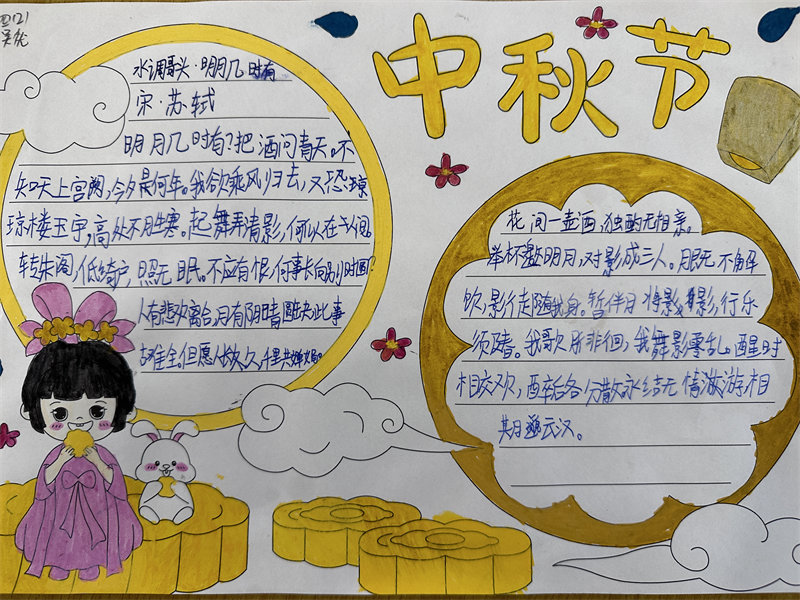 四(2)
中秋节
水调歌头·明月几时有
宋·苏轼
明月几时有?把酒问青天。不
知天上宫阙,今夕是何年。我欲乘风归去,又恐琼
琼楼玉宇,高处不胜寒。起舞弄清影,何似在人间
转朱阁,低绮户,照无眠。不应有恨,何事长向别时圆?
人有悲欢离合,月有阴晴圆缺,此事
古难全。但愿人长久,千里共婵娟。
花间一壶酒,独酌无相亲。
举杯邀明月,对影成三人。月既无不解
饮,影徒随我身。暂伴月将影,行乐
须及春。我歌月徘徊,我舞影零乱。醒时
相交欢,醉后各分散。永结无情游,相
期邈云汉。